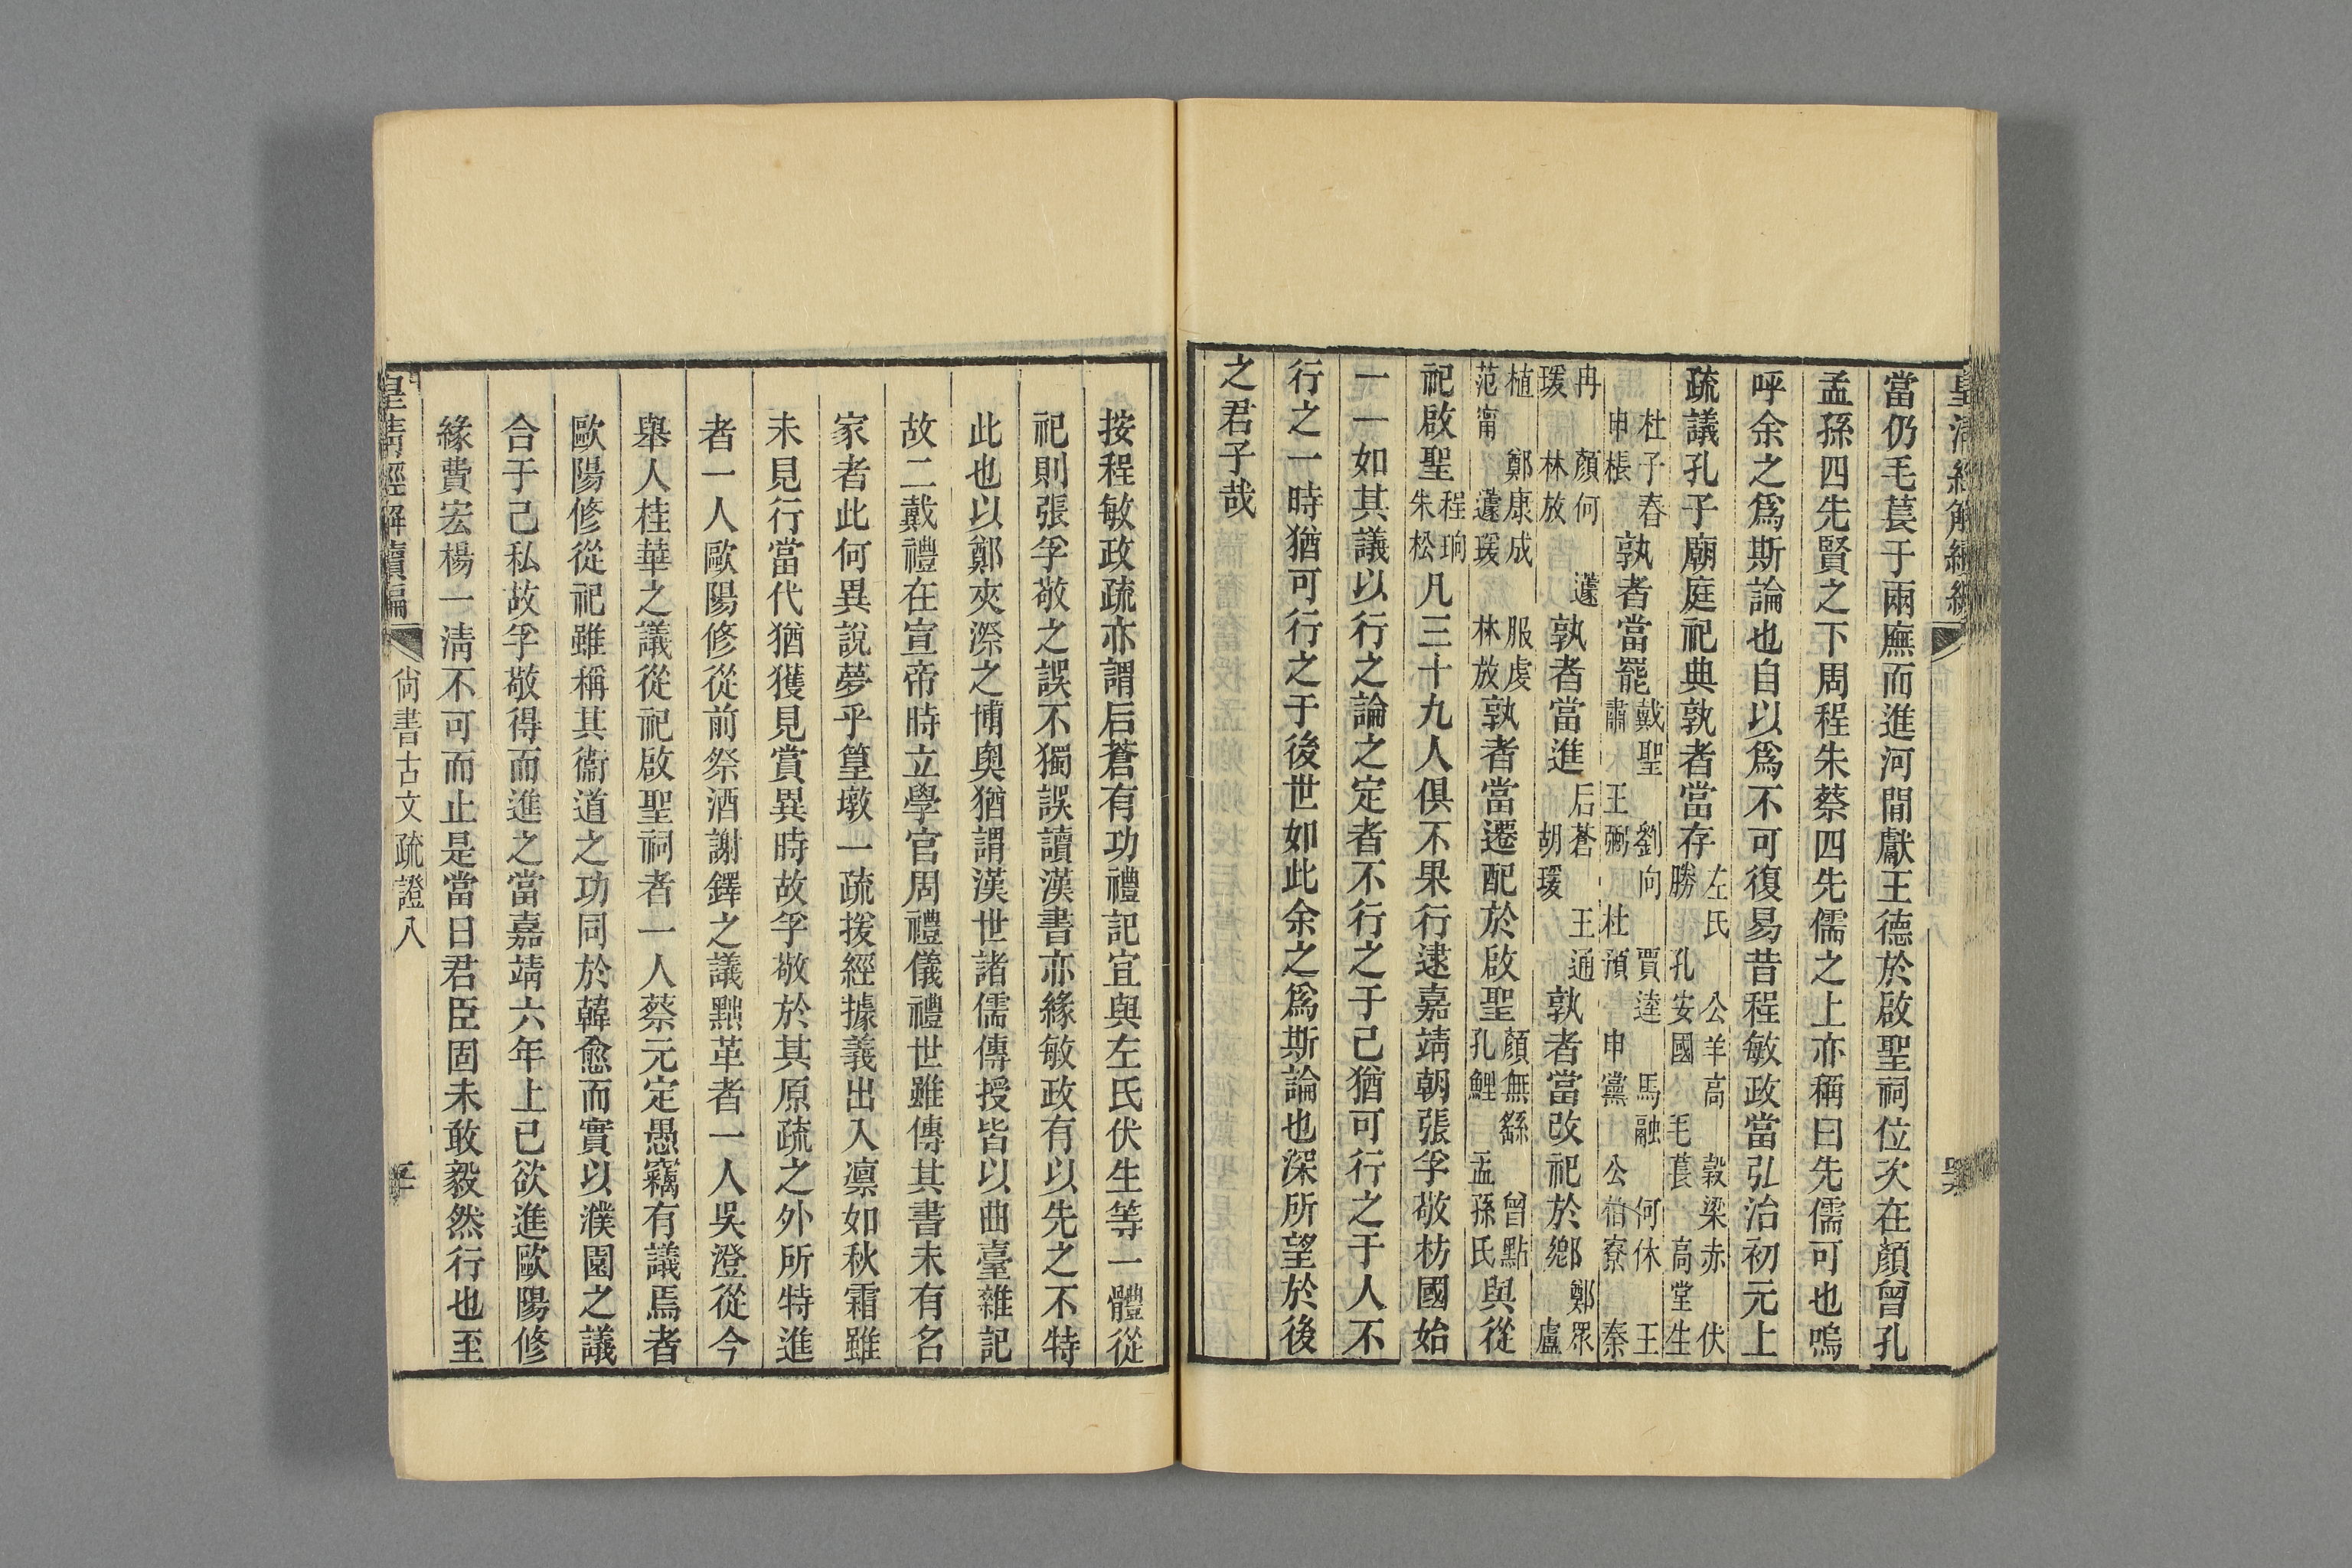 當仍毛萇于兩廡而進河間獻王德於啟聖祠位次在顏曾孔
孟孫四先賢之下周程朱蔡四先儒之上亦稱曰先儒可也嗚
呼余之爲斯論也自以爲不可復易昔程敏政當弘治初元上
疏議孔子廟庭祀典孰者當存左氏 公羊高 穀梁赤 伏勝 孔安國 毛萇 高堂生
杜子春 申棖孰者當罷戴聖 劉向 賈逵 馬融 何休 王肅 王弼 杜預 申黨 公伯寮 秦
冉 顏何 蘧瑗 林放孰者當進后蒼 王通 胡瑗孰者當改祀於鄉鄭眾 盧
植 鄭康成 服虔 范甯 蘧瑗 林放孰者當遷配於啟聖顏無繇 曾點 孔鯉 孟孫氏與從
祀啟聖程珦 朱松凡三十九人俱不果行逮嘉靖朝張孚敬枋國始
一一如其議以行之論之定者不行之于己猶可行之于人不
行之一時猶可行之于後世如此余之爲斯論也深所望於後
之君子哉
按程敏政疏亦謂后蒼有功禮記宜與左氏伏生等一體從
祀則張孚敬之誤不獨誤讀漢書亦緣敏政有以先之不特
此也以鄭夾漈之博奧猶謂漢世諸儒傳授皆以曲臺雜記
故二戴禮在宣帝時立學官周禮儀禮世雖傳其書未有名
家者此何異說夢乎篁墩一疏援經據義出入凛如秋霜雖
未見行當代猶獲見賞異時故孚敬於其原疏之外所特進
者一人歐陽修從前祭酒謝鐸之議黜革者一人吳澄從今
舉人桂華之議從祀啟聖祠者一人蔡元定愚竊有議焉者
歐陽修從祀雖稱其衞道之功同於韓愈而實以濮園之議
合于己私故孚敬得而進之當嘉靖六年上已欲進歐陽修
緣費宏楊一清不可而止是當日君臣固未敢毅然行也至
皇清經解續編
尚書古文疏證八